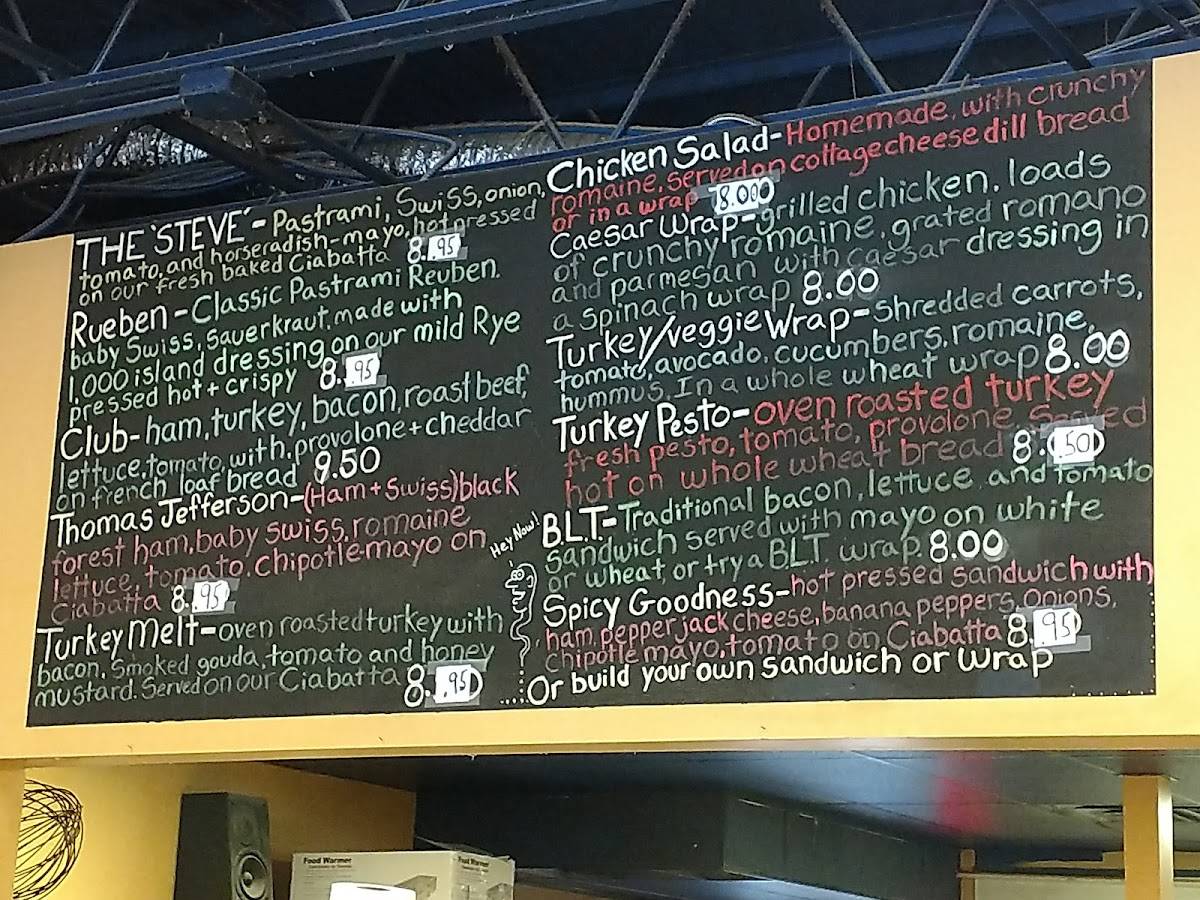 THE 'STEVE' - Pastrami, Swiss, onion,
tomato, and horseradish-mayo, hot pressed
on our fresh baked Ciabatta 8.95
Rueben - Classic Pastrami Reuben.
baby Swiss, Sauerkraut, made with
1,000 island dressing on our mild Rye
pressed hot + crispy 8.95
Club - ham, turkey, bacon, roast beef,
lettuce, tomato, with provolone + cheddar
on french loaf bread 9.50
Thomas Jefferson - (Ham + Swiss) black
forest ham, baby swiss, romaine
lettuce, tomato, Chipotle-mayo on
Ciabatta 8.95
Turkey Melt - oven roasted turkey with
bacon, smoked gouda, tomato and honey
mustard. Served on our Ciabatta 8.95
Hey Now!
Chicken Salad - Homemade, with crunchy
romaine, served on cottage cheese dill bread
or in a wrap 8.00
Caesar Wrap - grilled chicken, loads
of crunchy romaine, grated romano
and parmesan with caesar dressing in
a spinach wrap 8.00
Turkey/veggie Wrap - Shredded carrots,
tomato, avocado, cucumbers, romaine,
hummus. In a whole wheat wrap 8.00
Turkey Pesto - oven roasted turkey
fresh pesto, tomato, provolone. Served
hot on whole wheat bread 8.50
B.L.T. - Traditional bacon, lettuce and tomato
sandwich served with mayo on white
or wheat, or try a B.L.T. wrap. 8.00
Spicy Goodness - hot pressed sandwich with
ham, pepper jack cheese, banana peppers, onions,
chipotle mayo, tomato on Ciabatta 8.95
Or build your own sandwich or wrap
Food Warmer